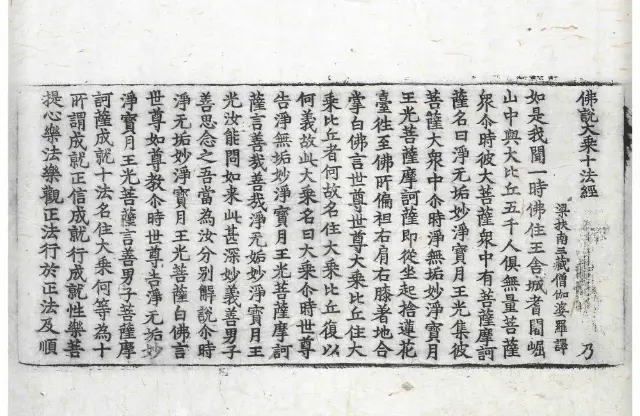 佛說大乘十法經
梁扶南三藏僧伽婆羅譯 乃
如是我聞一時佛住王舍城耆闍崛
山中與大比丘五千人俱無量菩薩
衆尒時彼大菩薩衆中有菩薩摩訶
薩名曰淨无垢妙淨寶月王光集彼
菩薩大衆中尒時淨無垢妙淨寶月
王光菩薩摩訶薩即從坐起捨蓮花
臺徃至佛所偏袒右肩右膝著地合
掌白佛言世尊世尊大乘比丘住大
乘比丘者何故名住大乘比丘復以
何義故此大乘名曰大乘尒時世尊
告淨無垢妙淨寶月王光菩薩摩訶
薩言善哉善哉淨无垢妙淨寶月王
光汝能問如来此甚深妙義善男子
善思念之吾當為汝分别解說尒時
淨无垢妙淨寶月王光菩薩白佛言
世尊如尊教尒時世尊告淨无垢妙
淨寶月王光菩薩言善男子菩薩摩
訶薩成就十法名住大乘何等為十
所謂成就正信成就行成就性樂菩
提心樂法樂觀正法行於正法及順